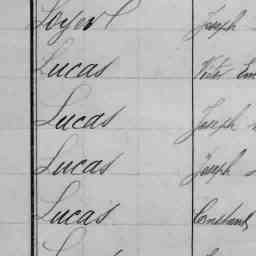 Loyer Joseph
Lucas Victor Em
Lucas Joseph
Lucas Joseph
Lucas Constant